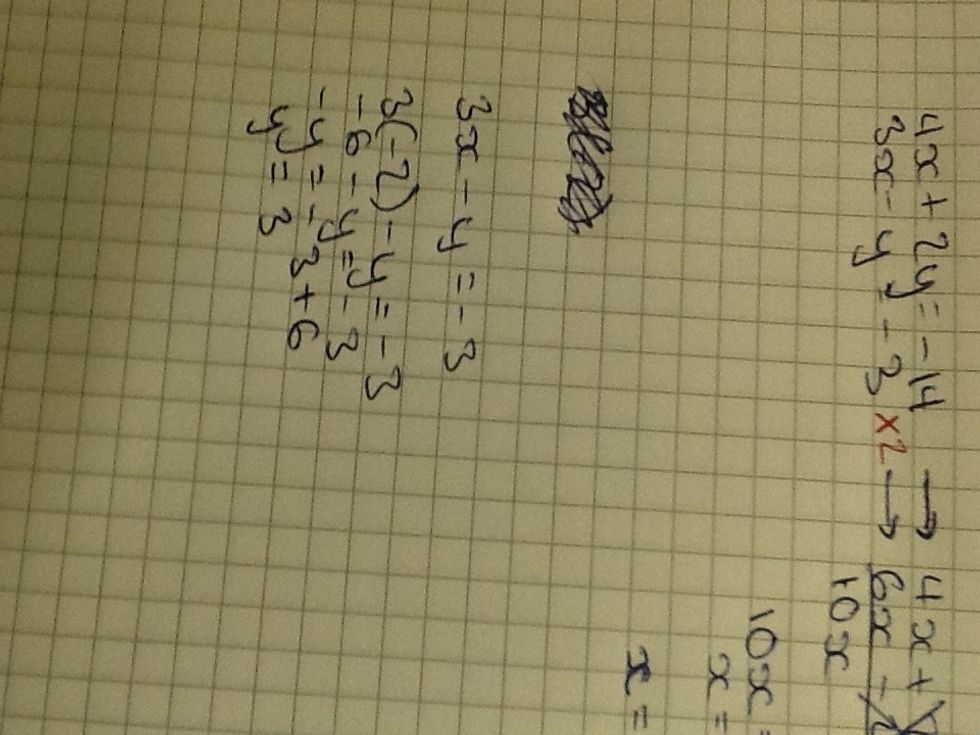 4x + 2y = -14 → 4x +
3x - y = -3 ×2 → 6x -
10x
10x =
x =
x =
3x - y = -3
3(-2) - y = -3
-6 - y = -3
-y = -3 + 6
y = 3